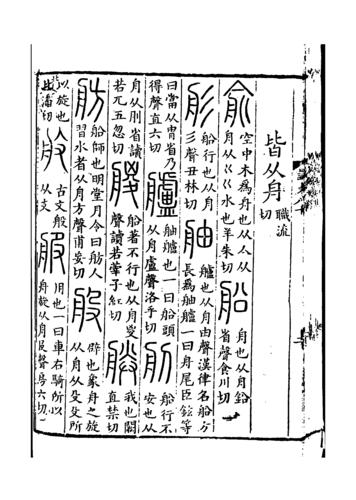 皆从舟職流切
俞空中木為舟也从亼从舟从巜巜水也羊朱切船舟也从舟鉛省聲食川切
彤船行也从舟彡聲丑林切舳艫也从舟由聲漢律名船方長為舳艫一曰舟尾臣鉉等
曰當从胄省乃得聲直六切艫舳艫也一曰船頭从舟盧聲洛乎切𦨉船行不安也从
舟从刖省讀若兀五忽切艐船著不行也从舟㚇聲讀若子紅切朕我也闕直禁切
舫船師也明堂月令曰舫人習水者从舟方聲甫妄切般辟也象舟之旋从舟从殳殳所
以旋也北潘切古文般从支服用也一曰車右騎所以舟旋从舟𠬝聲房六切